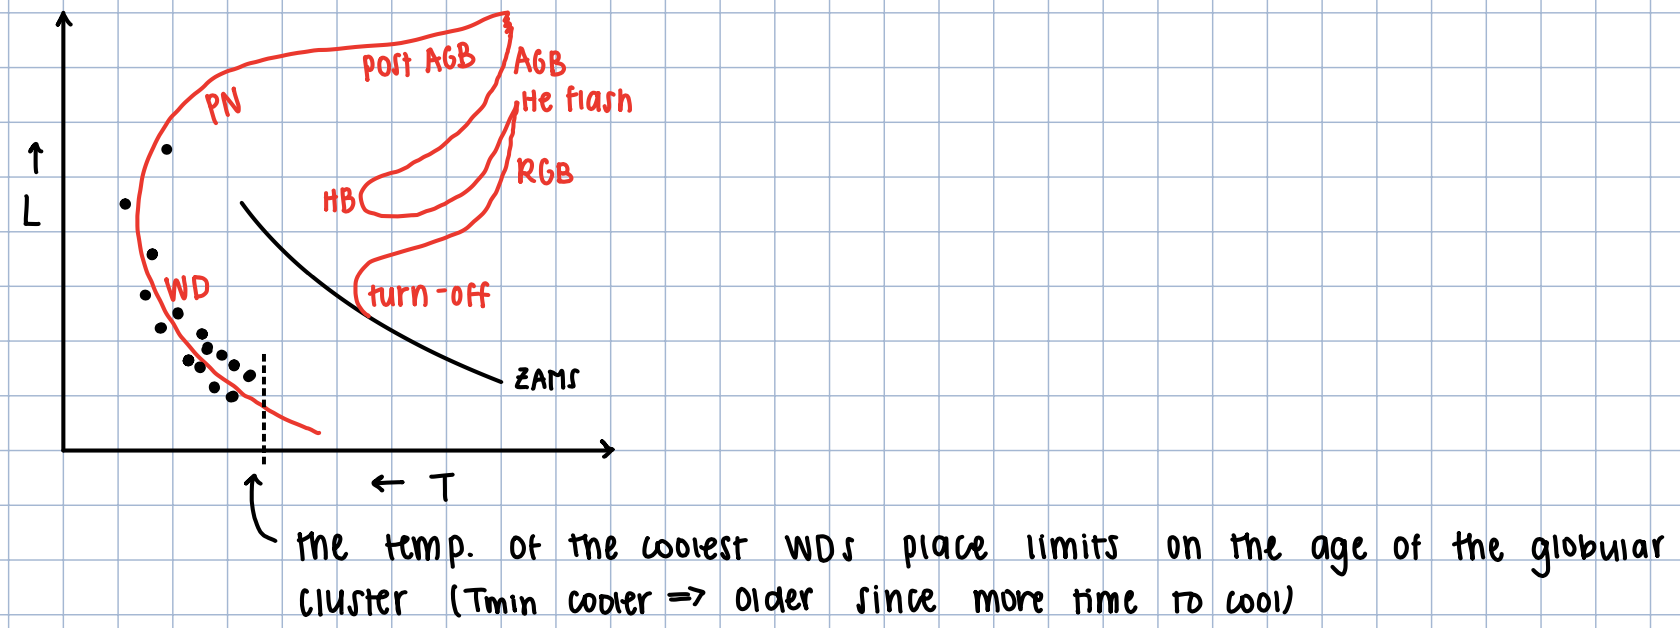 post AGB
AGB
He flash
PN
RGB
HB
↑
L
WD
turn-off
ZAMS
← T
the temp. of the coolest WDs place limits on the age of the globular
cluster (Tmin cooler => older since more time to cool)